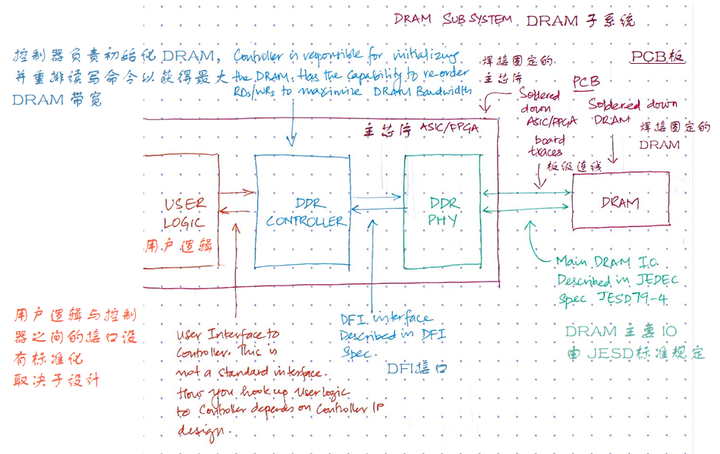 DRAM SUBSYSTEM DRAM 子系统
控制器负责初始化 DRAM,
并重排读写命令以获得最大
DRAM 带宽
Controller is responsible for initializing
the DRAM. Has the Capability to re-order
RDs/WRs to maximize DRAM Bandwidth
焊接固定的
主芯片
PCB板
PCB
Soldered
down
ASIC/FPGA
Soldered down
DRAM
焊接固定的
DRAM
board
traces
板级连线
主芯片 ASIC/FPGA
USER
LOGIC
用户逻辑
DDR
CONTROLLER
DDR
PHY
DRAM
Main DRAM I.O.
Described in JEDEC
Spec JESD79-4
DRAM 主要 IO
由 JESD标准规定
用户逻辑与控制
器之间的接口没
有标准化
取决于设计
User Interface to
Controller. This is
not a standard interface.
How you hook up User logic
to Controller depends on Controller IP
design.
DFI interface
Described in DFI
Spec.
DFI接口